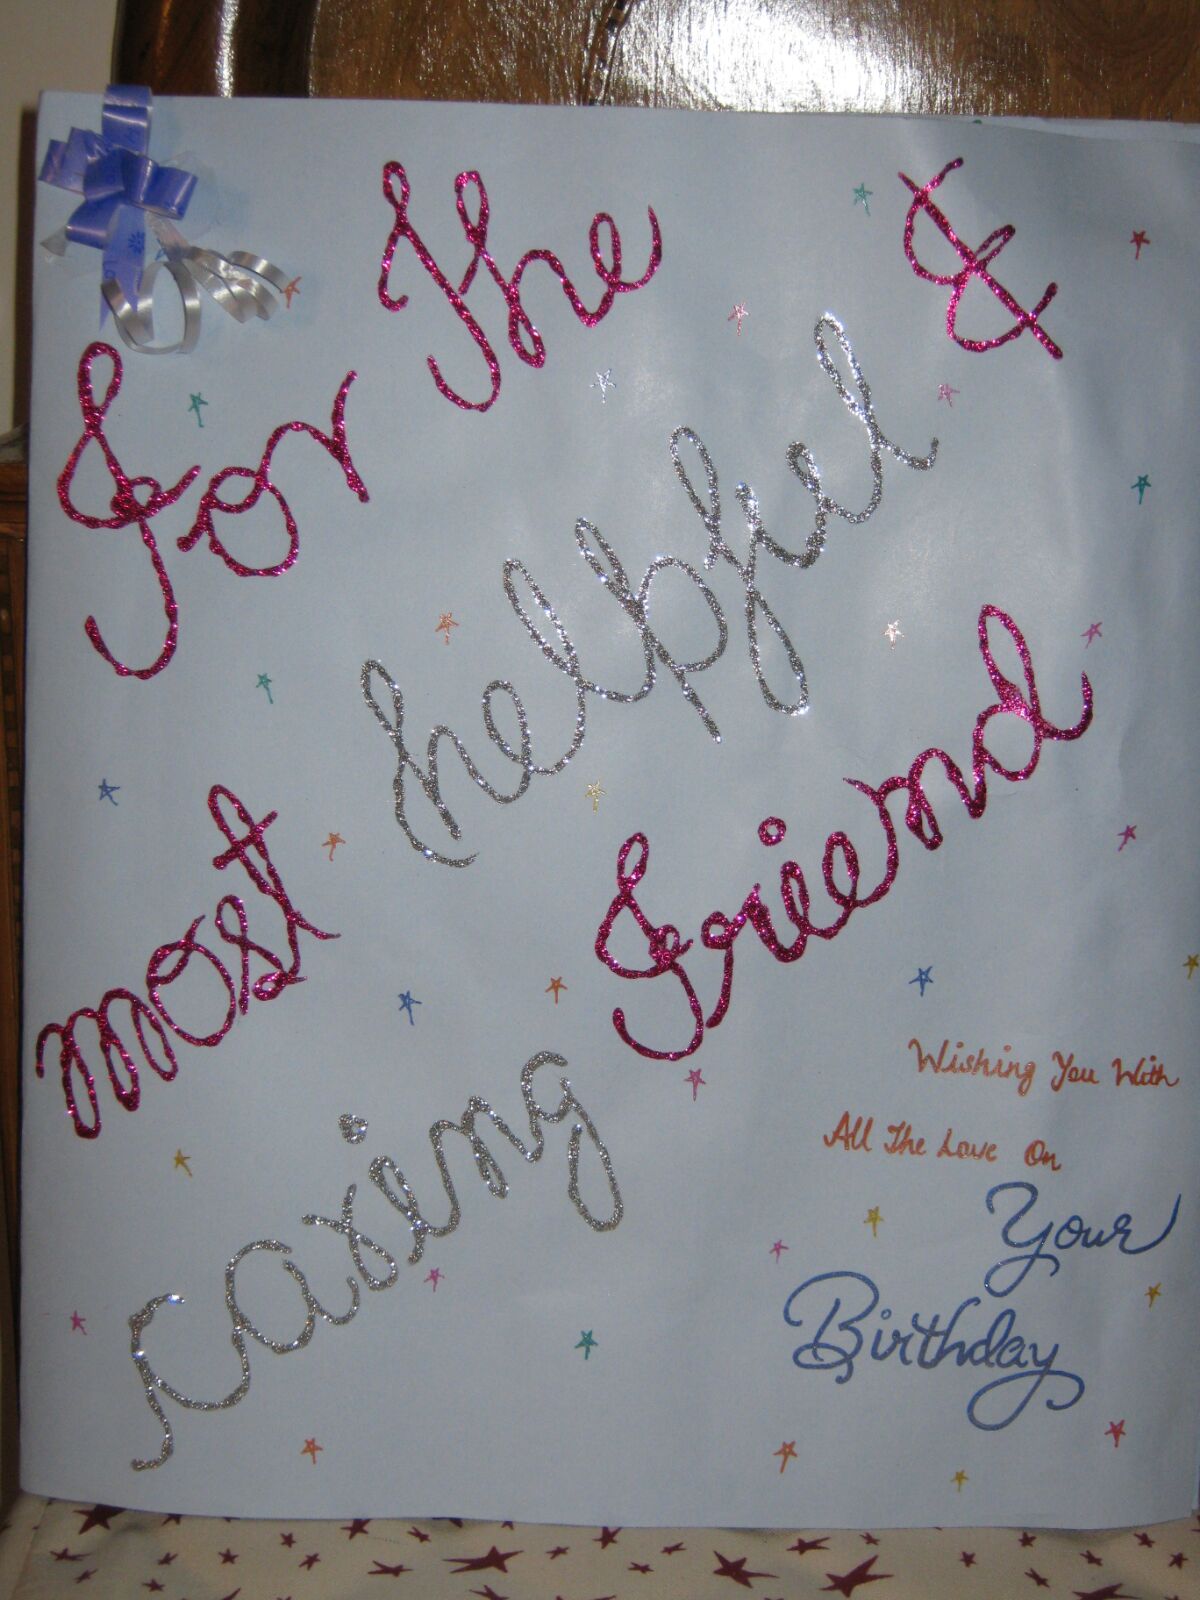 For The
helpful &
most
caring
Friend
Wishing You With
All The Love On
Your
Birthday